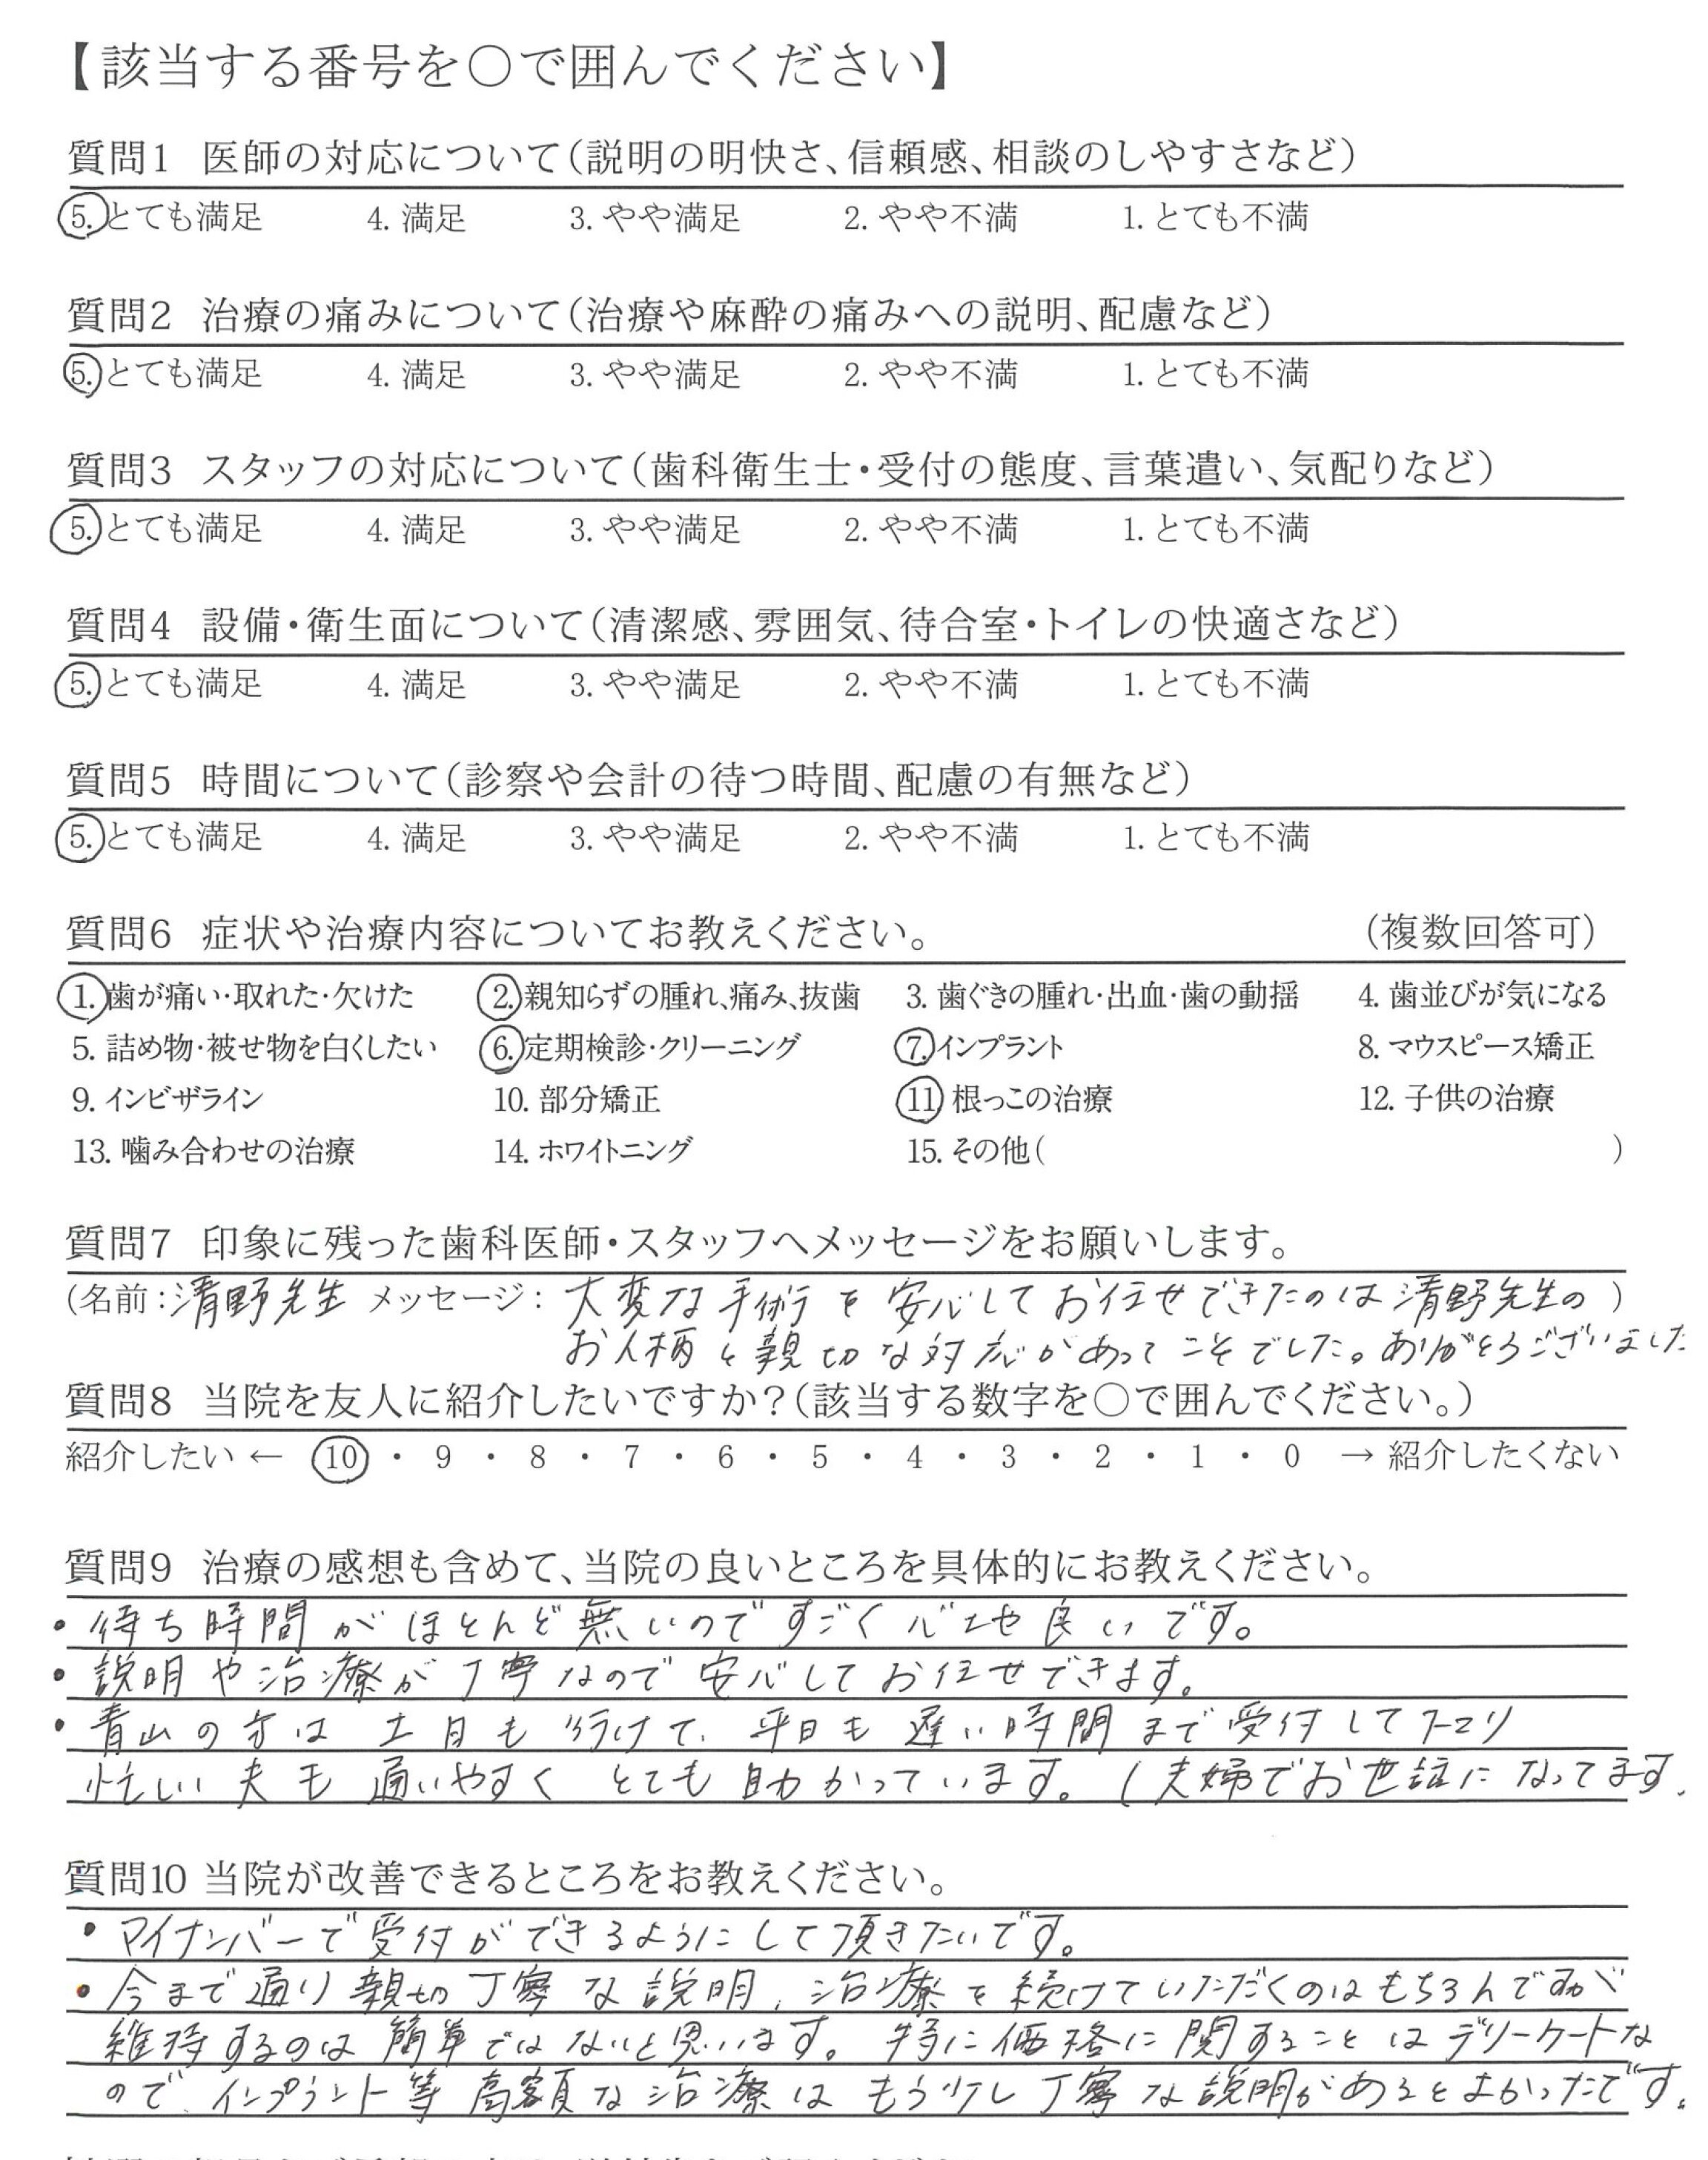 【該当する番号を○で囲んでください】
質問1 医師の対応について(説明の明快さ、信頼感、相談のしやすさなど)
5. とても満足 4. 満足 3. やや満足 2. やや不満 1. とても不満
質問2 治療の痛みについて(治療や麻酔の痛みへの説明、配慮など)
5. とても満足 4. 満足 3. やや満足 2. やや不満 1. とても不満
質問3 スタッフの対応について(歯科衛生士・受付の態度、言葉遣い、気配りなど)
5. とても満足 4. 満足 3. やや満足 2. やや不満 1. とても不満
質問4 設備・衛生面について(清潔感、雰囲気、待合室・トイレの快適さなど)
5. とても満足 4. 満足 3. やや満足 2. やや不満 1. とても不満
質問5 時間について(診察や会計の待つ時間、配慮の有無など)
5. とても満足 4. 満足 3. やや満足 2. やや不満 1. とても不満
質問6 症状や治療内容についてお教えください。 (複数回答可)
1. 歯が痛い・取れた・欠けた 2. 親知らずの腫れ、痛み、抜歯 3. 歯ぐきの腫れ・出血・歯の動揺 4. 歯並びが気になる
5. 詰め物・被せ物を白くしたい 6. 定期検診・クリーニング 7. インプラント 8. マウスピース矯正
9. インビザライン 10. 部分矯正 11. 根っこの治療 12. 子供の治療
13. 噛み合わせの治療 14. ホワイトニング 15. その他( )
質問7 印象に残った歯科医師・スタッフへメッセージをお願いします。
(名前:清野先生 メッセージ: 大変な手術を安心してお任せできたのは清野先生の )
お人柄と親切な対応があってこそでした。ありがとうございました
質問8 当院を友人に紹介したいですか?(該当する数字を○で囲んでください。)
紹介したい ← 10 ・ 9 ・ 8 ・ 7 ・ 6 ・ 5 ・ 4 ・ 3 ・ 2 ・ 1 ・ 0 → 紹介したくない
質問9 治療の感想も含めて、当院の良いところを具体的にお教えください。
・待ち時間がほとんど無いのですごく心地良いです。
・説明や治療が丁寧なので安心してお任せできます。
・青山の方は土日も行けて、平日も遅い時間まで受付してたり
忙しい夫も通いやすくとても助かっています。(夫婦でお世話になってます。
質問10 当院が改善できるところをお教えください。
・マイナンバーで受付ができるようにして頂きたいです。
・今まで通り親切丁寧な説明、治療を続けていただくのはもちろんですが
維持するのは簡単ではないと思います。特に価格に関することはデリーケートな
ので、インプラント等高額な治療はもう少し丁寧な説明があるとよかったです。